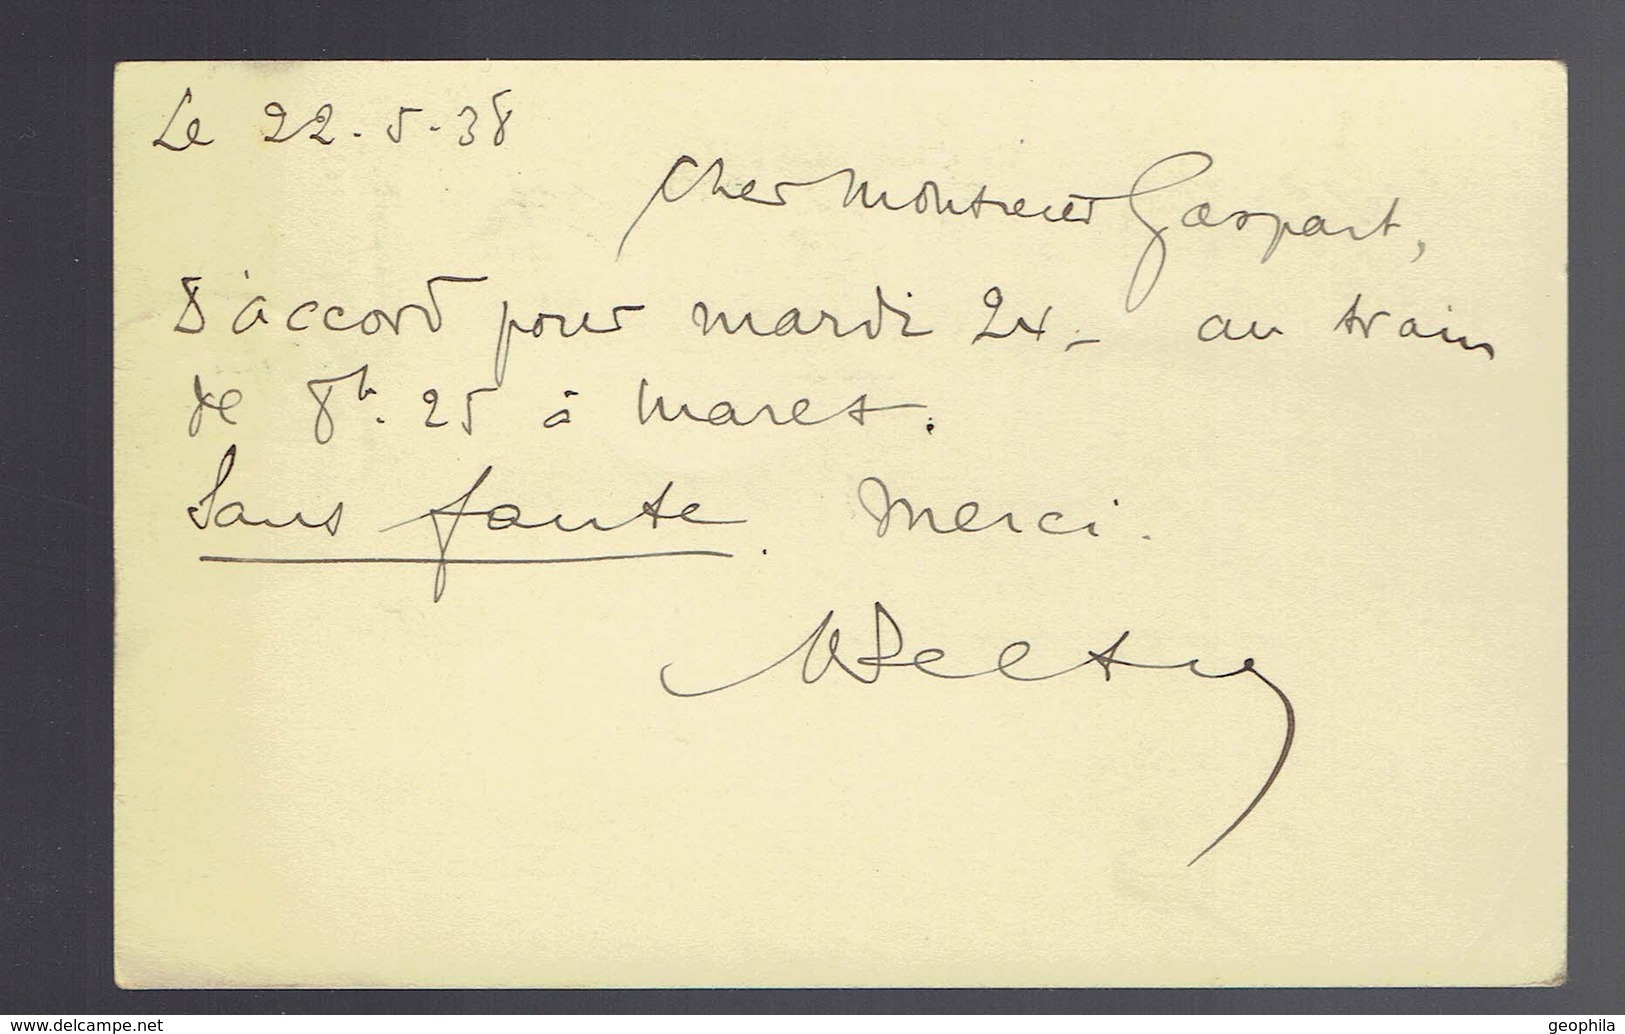 Le 22-5-38
Cher Monsieur Gaspart,
D'accord pour mardi 24 - au train
de 8h. 25 à Maret.
Sans faute. Merci.
delcampe.net
geophila